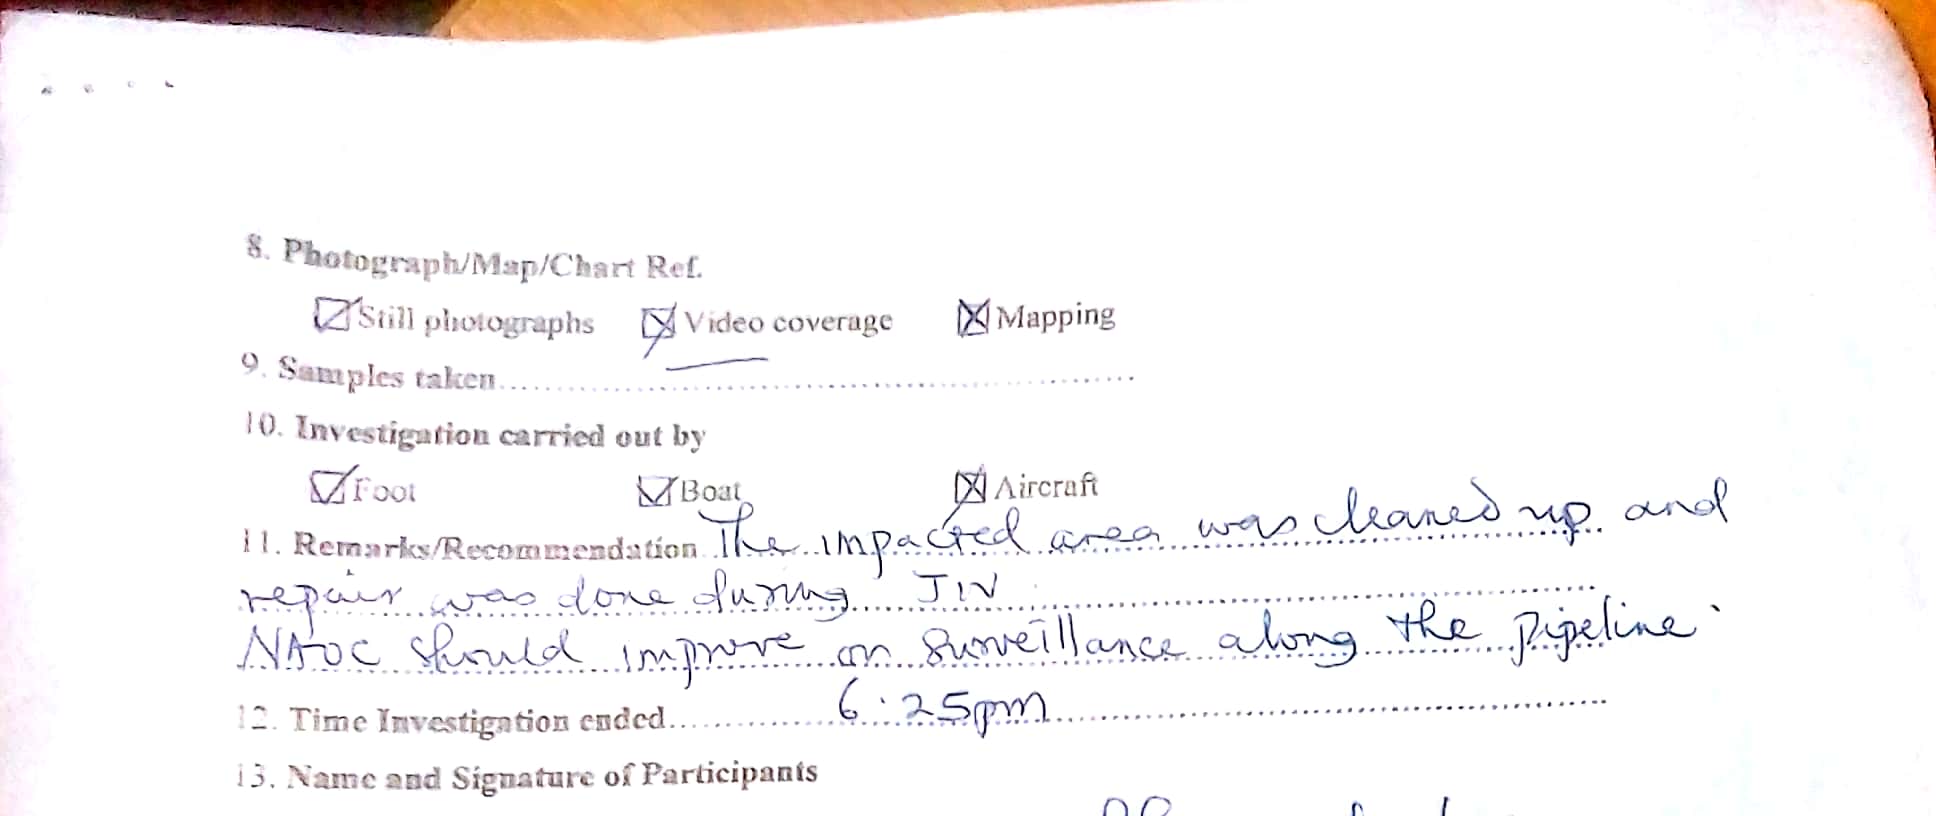 8. Photograph/Map/Chart Ref.
Still photographs Video coverage Mapping
9. Samples taken
10. Investigation carried out by
Foot Boat Aircraft
11. Remarks/Recommendation The impacted area was cleaned up and
repair was done during JIV
NAOC should improve on surveillance along the pipeline.
12. Time Investigation ended 6:25pm
13. Name and Signature of Participants